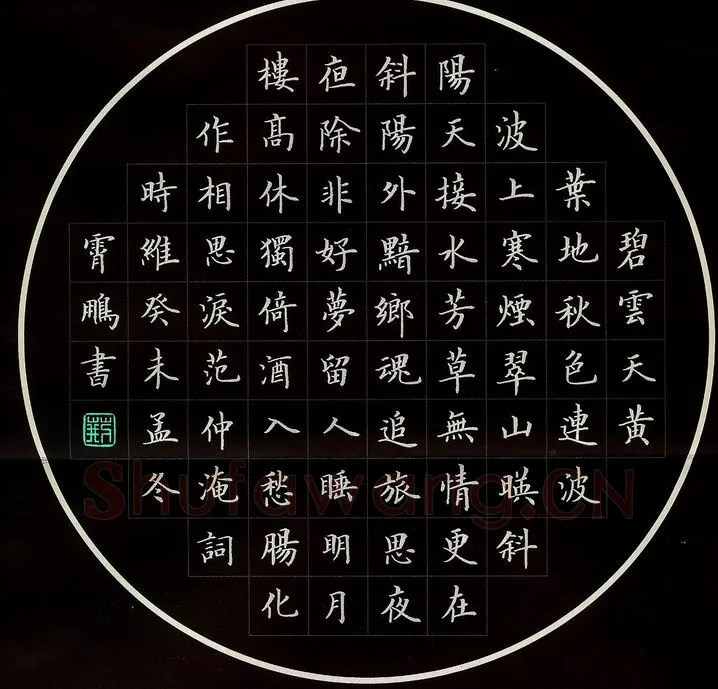 碧雲天黃
葉地秋色連波
波上寒煙翠山暎斜
陽天接水芳草無情更在
斜陽外黯鄉魂追旅思夜
亱除非好夢留人睡明月
樓髙休獨倚酒入愁腸化
作相思淚范仲淹詞
時維癸未孟冬
霄鵬書
Shufawang.CN